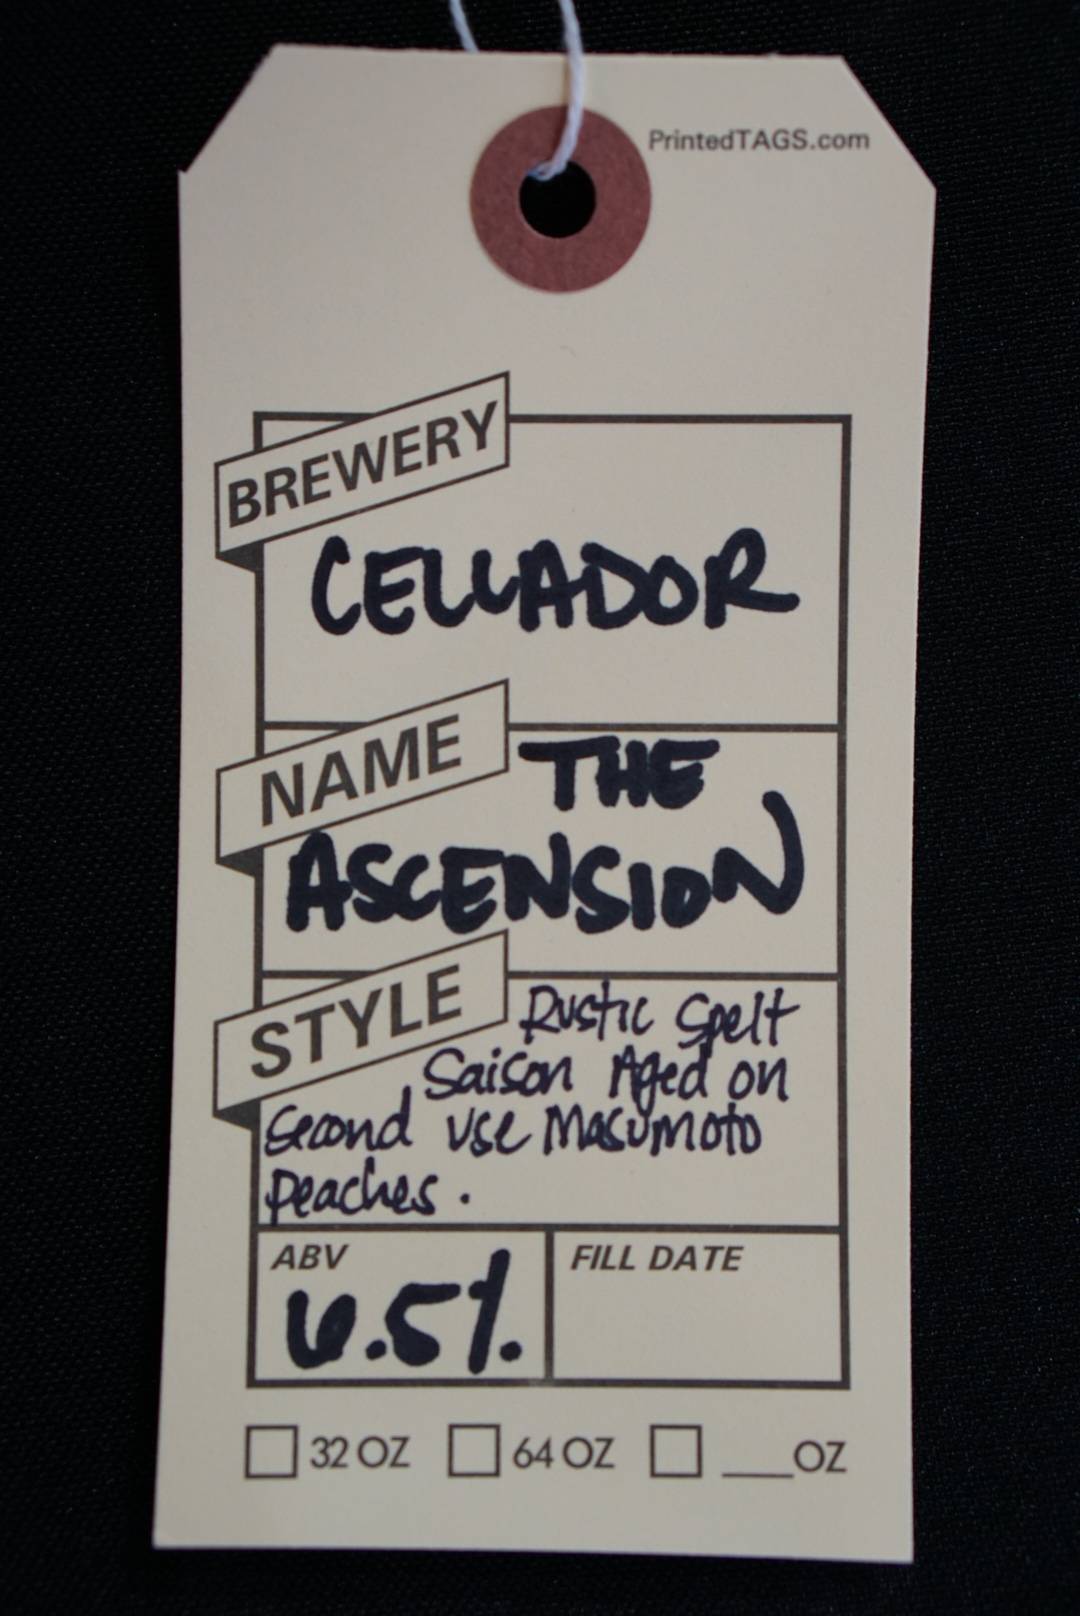 PrintedTAGS.com
BREWERY
CELLADOR
NAME
THE
ASCENSION
STYLE
Rustic Spelt
Saison Aged on
Second use Masumoto
peaches.
ABV
6.5%
FILL DATE
32 OZ
64 OZ
___OZ